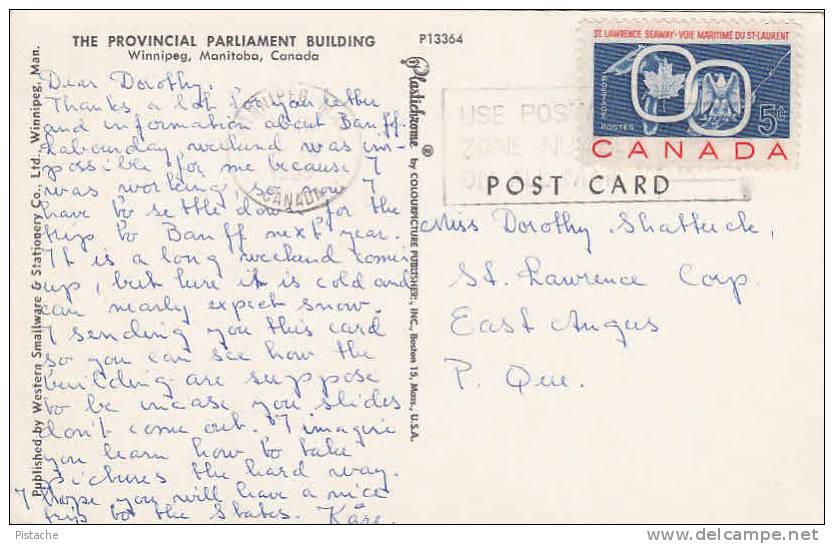 THE PROVINCIAL PARLIAMENT BUILDING
Winnipeg, Manitoba, Canada
P13364
Dear Dorothy.
Thanks a lot for your letter
and information about Banff.
Labourday weekend was im-
possible for me because I
was working, so now I
have to settle down for the
trip to Banff next year.
It is a long weekend comin
up, but here it is cold and
can nearly expect snow.
I sending you this card
so you can see how the
building are suppose
to be incase you slides
don't come out. I imagine
you learn how to take
pictures the hard way.
I hope you will have a nice
trip to the States. Kåre.
Published by Western Smallware & Stationery Co., Ltd. Winnipeg, Man.
Plastichrome ® by COLOURPICTURE PUBLISHERS, INC., Boston 15, Mass., U.S.A.
WINNIPEG
CANADA
USE POSTAL
ZONE NU
ST. LAWRENCE SEAWAY · VOIE MARITIME DU ST-LAURENT
POSTAGE
POSTES
5¢
CANADA
POST CARD
Miss Dorothy Shattuck,
St. Lawrence Corp.
East Angus
P. Que.
Pistache
delcampe.net